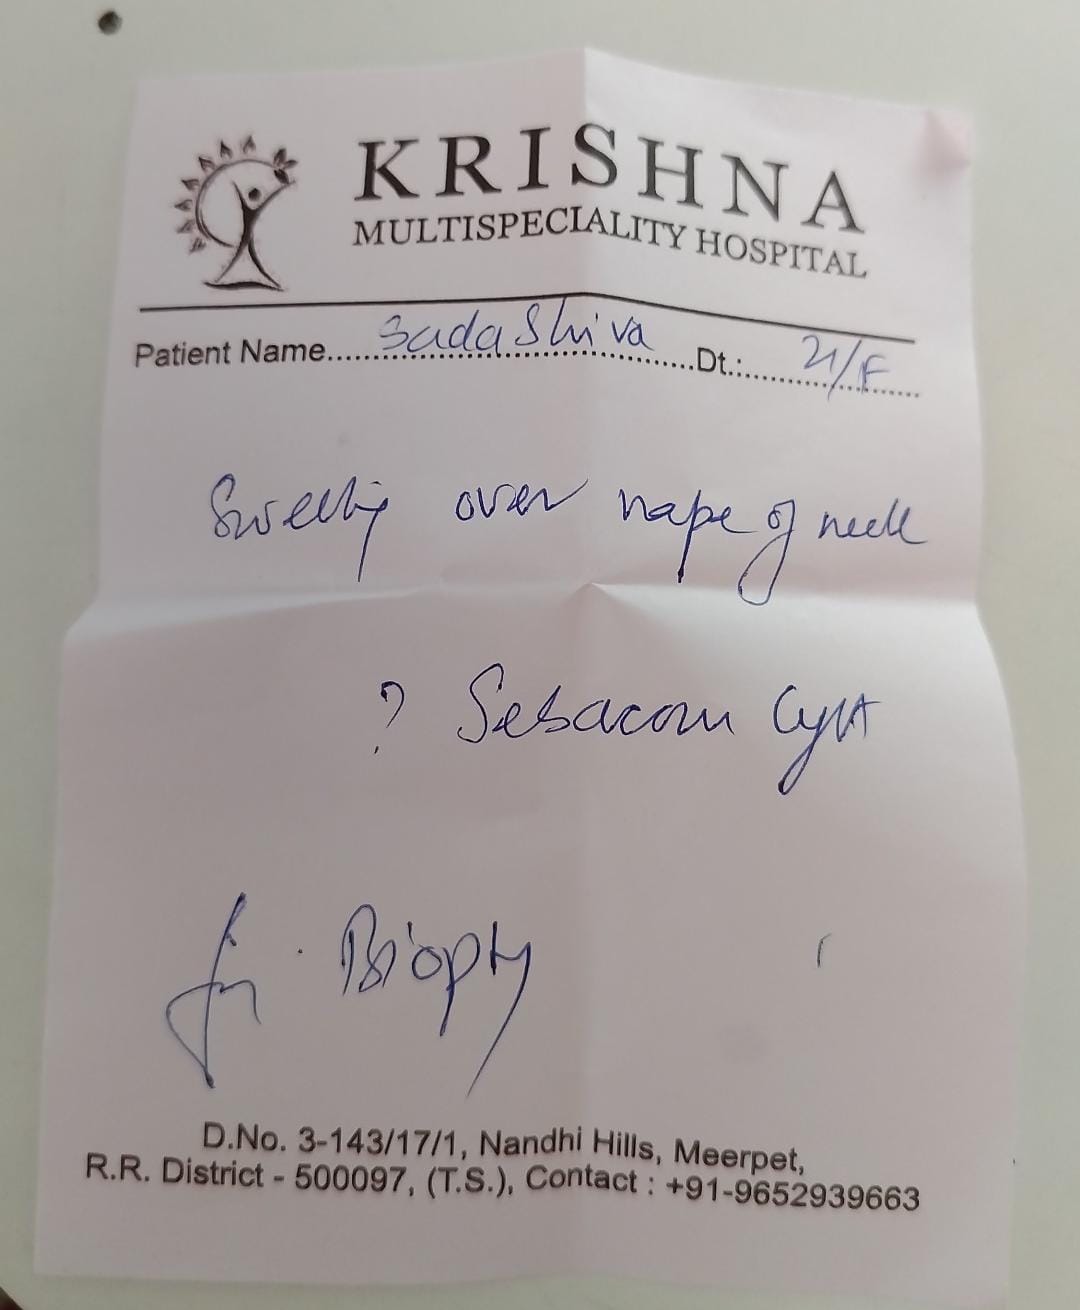 KRISHNA
MULTISPECIALITY HOSPITAL
Patient Name.....Sadashiva.....Dt.:.....21/F.....
Swelling over nape of neck
? Sebaceous Cyst
for Biopsy
D.No. 3-143/17/1, Nandhi Hills, Meerpet,
R.R. District - 500097, (T.S.), Contact : +91-9652939663